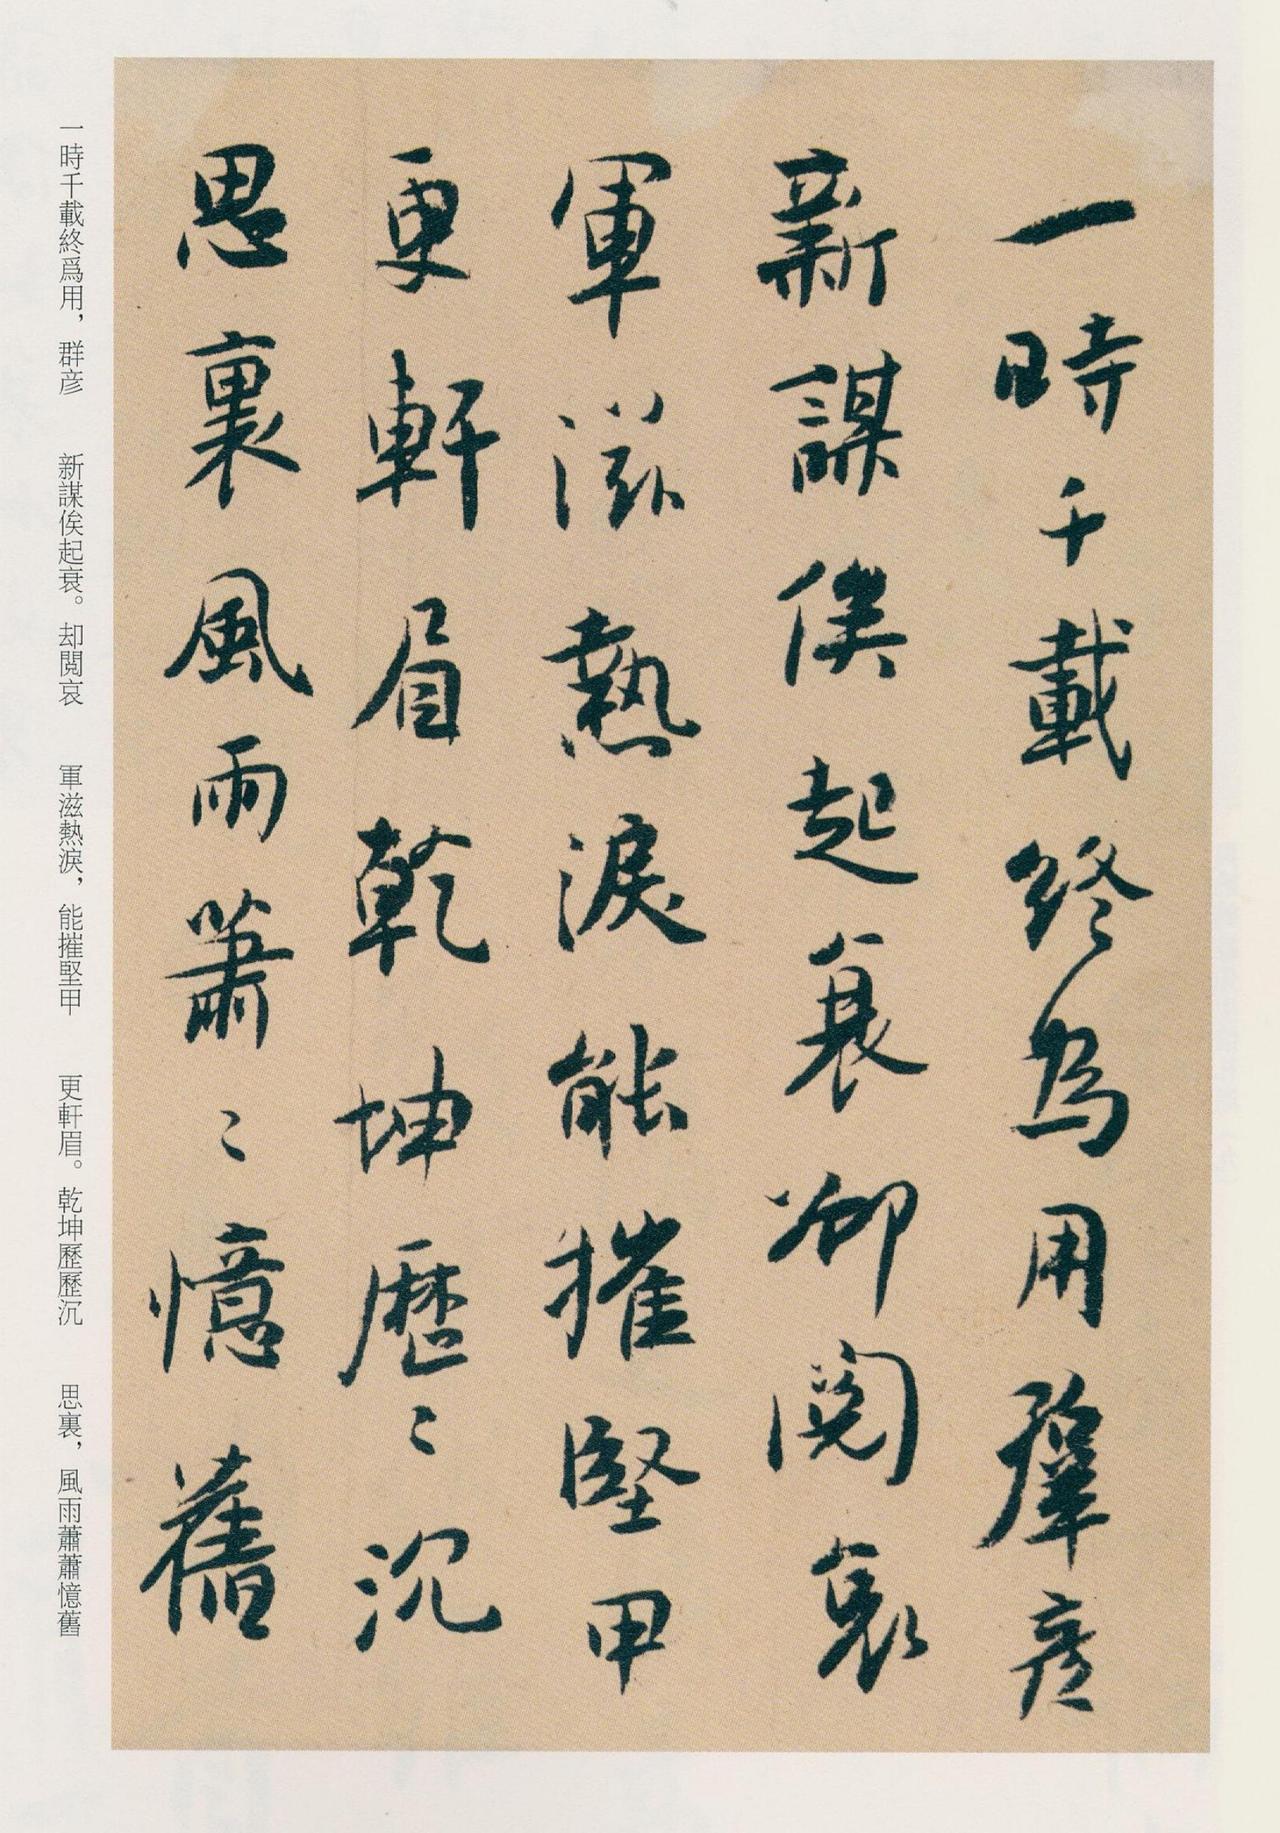 一時千載終為用羣彦
新謀俟起衰卻閱哀
軍滋熱淚能摧堅甲
更軒眉乾坤歷〻沉
思裏風雨蕭〻憶舊
一時千載終爲用，群彦　新謀俟起衰。却閲哀　軍滋熱淚，能摧堅甲　更軒眉。乾坤歷歷沉　思裏，風雨蕭蕭憶舊